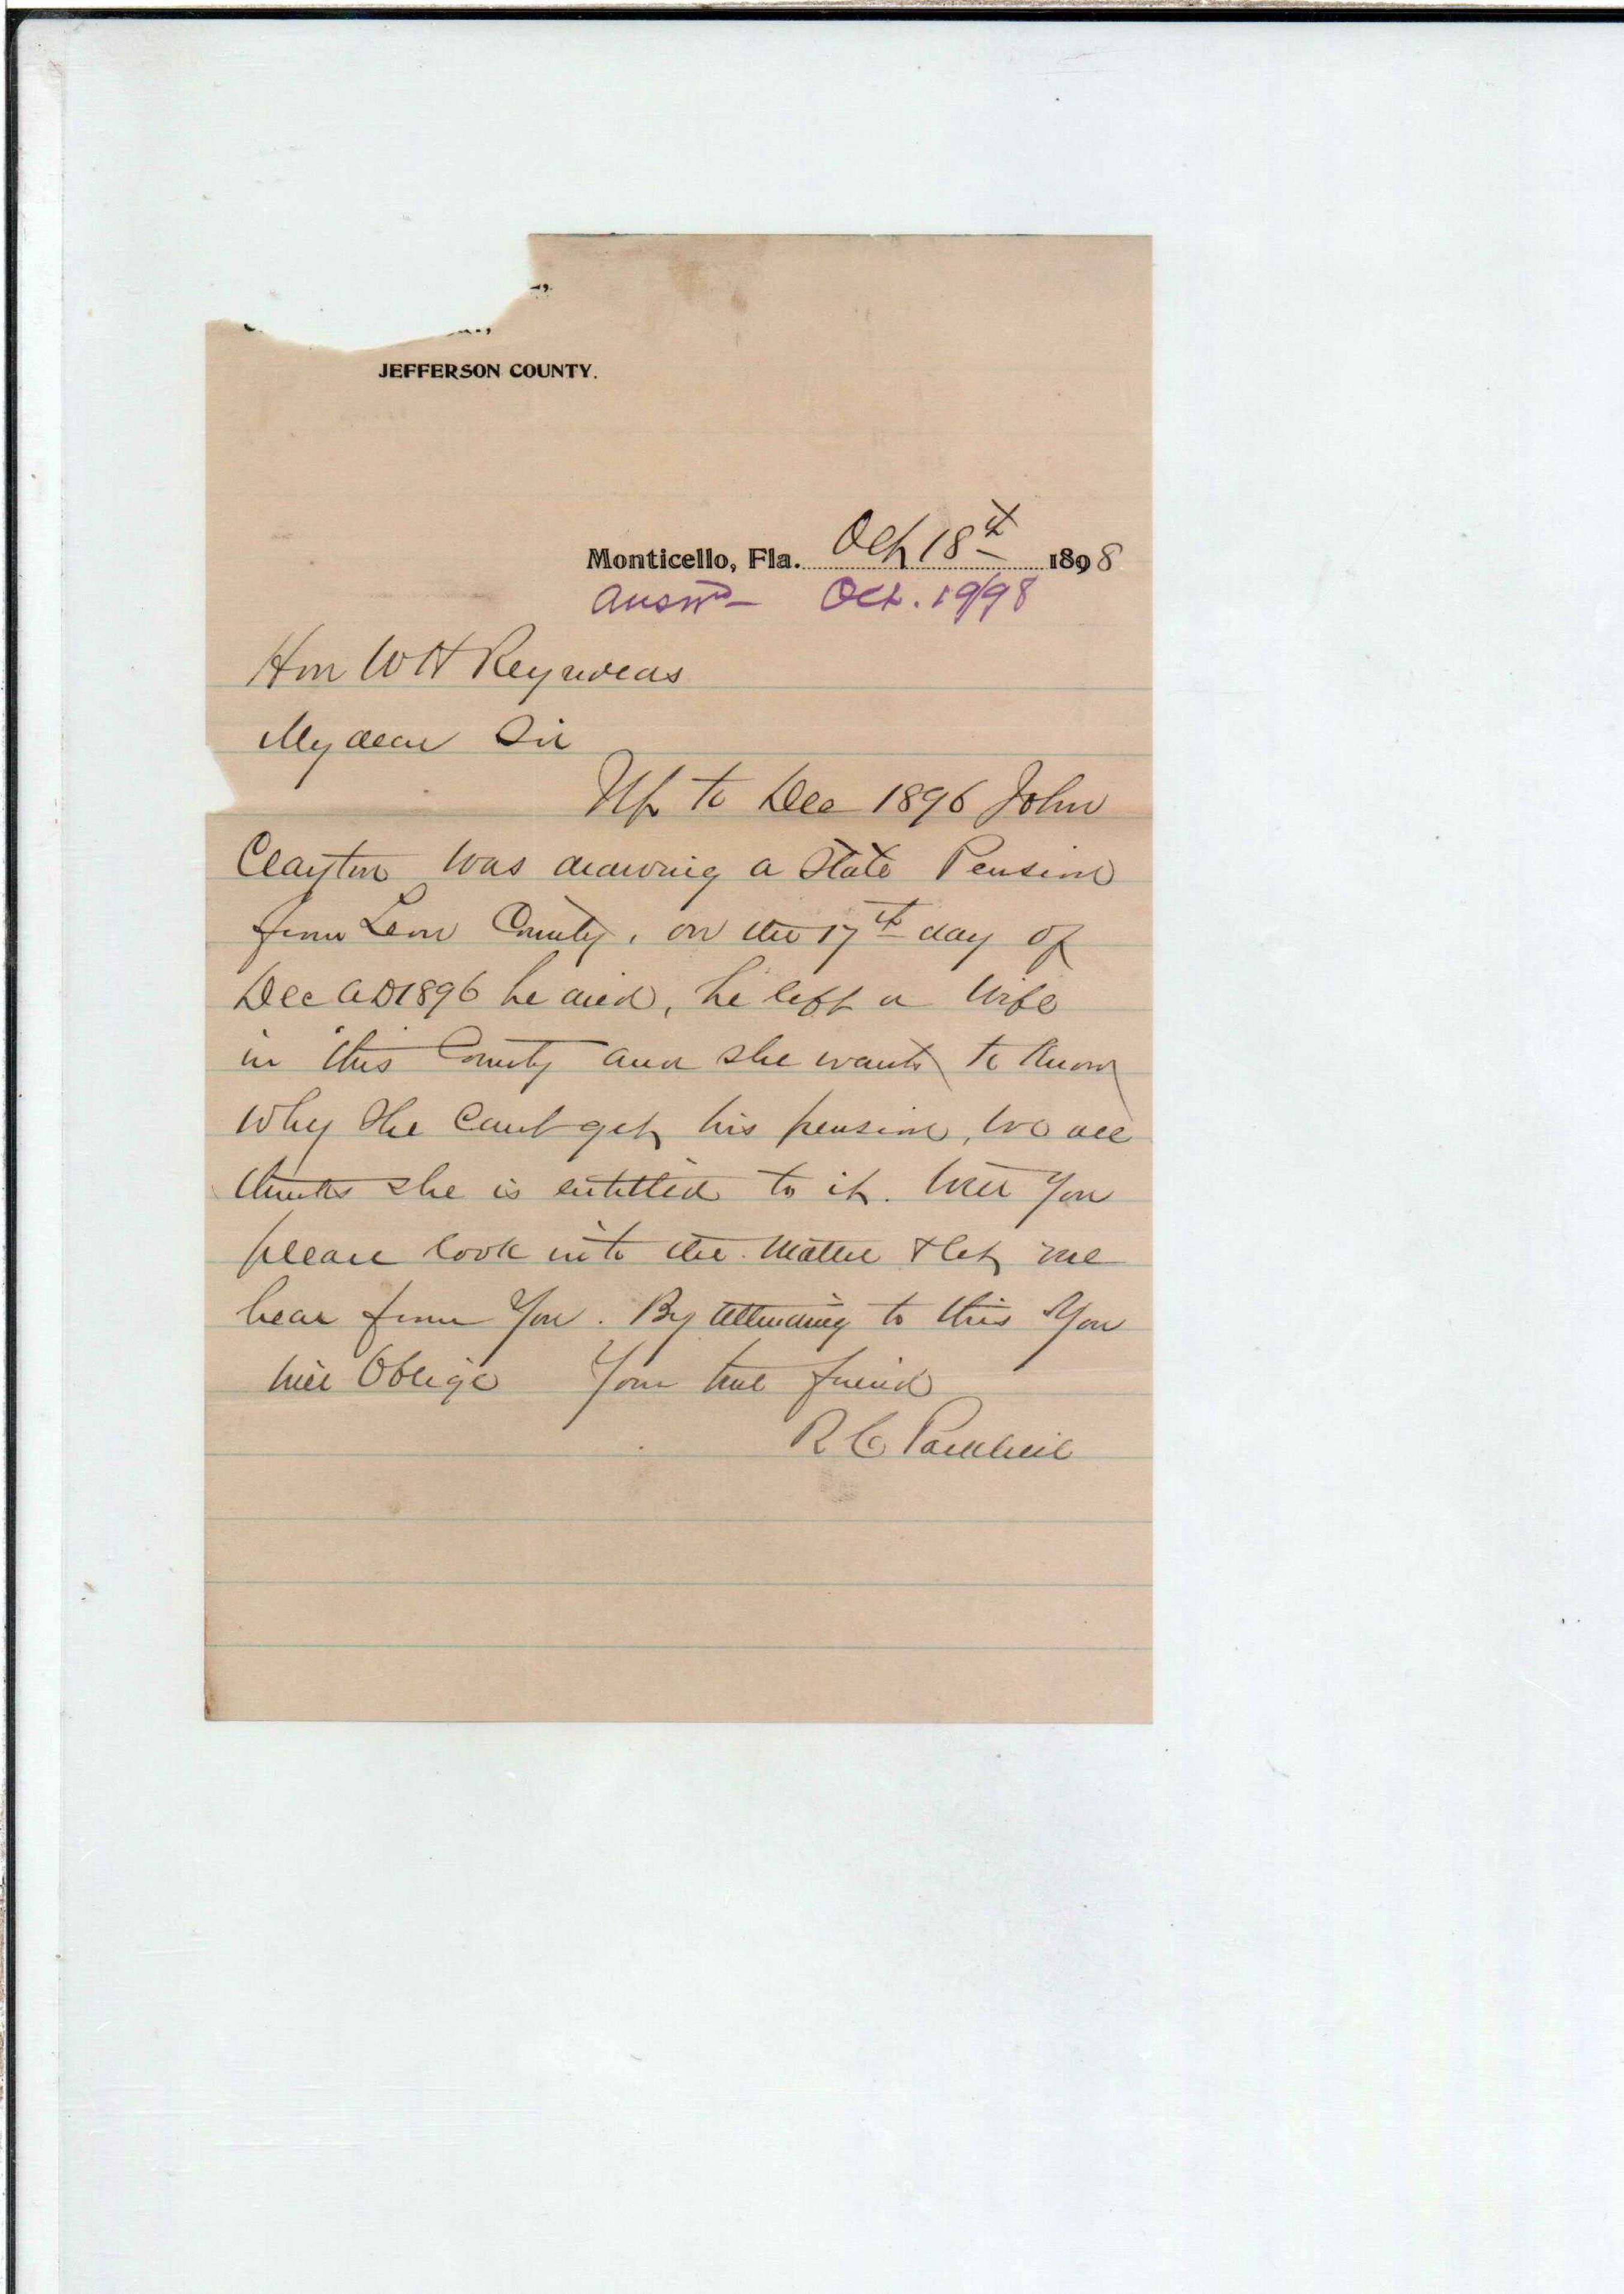 JEFFERSON COUNTY.
Monticello, Fla. Oct 18th 1898
Answd - Oct. 19/98
Hon W H Reynolds
My dear Sir
Up to Dec 1896 John
Clayton was drawing a State Pension
from Leon County, on the 17th day of
Dec AD 1896 he died, he left a wife
in this County and she wants to know
why she cant get his pension, we all
thinks she is entitled to it. Will you
please look into the matter & let me
hear from you. By attending to this you
will Oblige Your true friend
R C